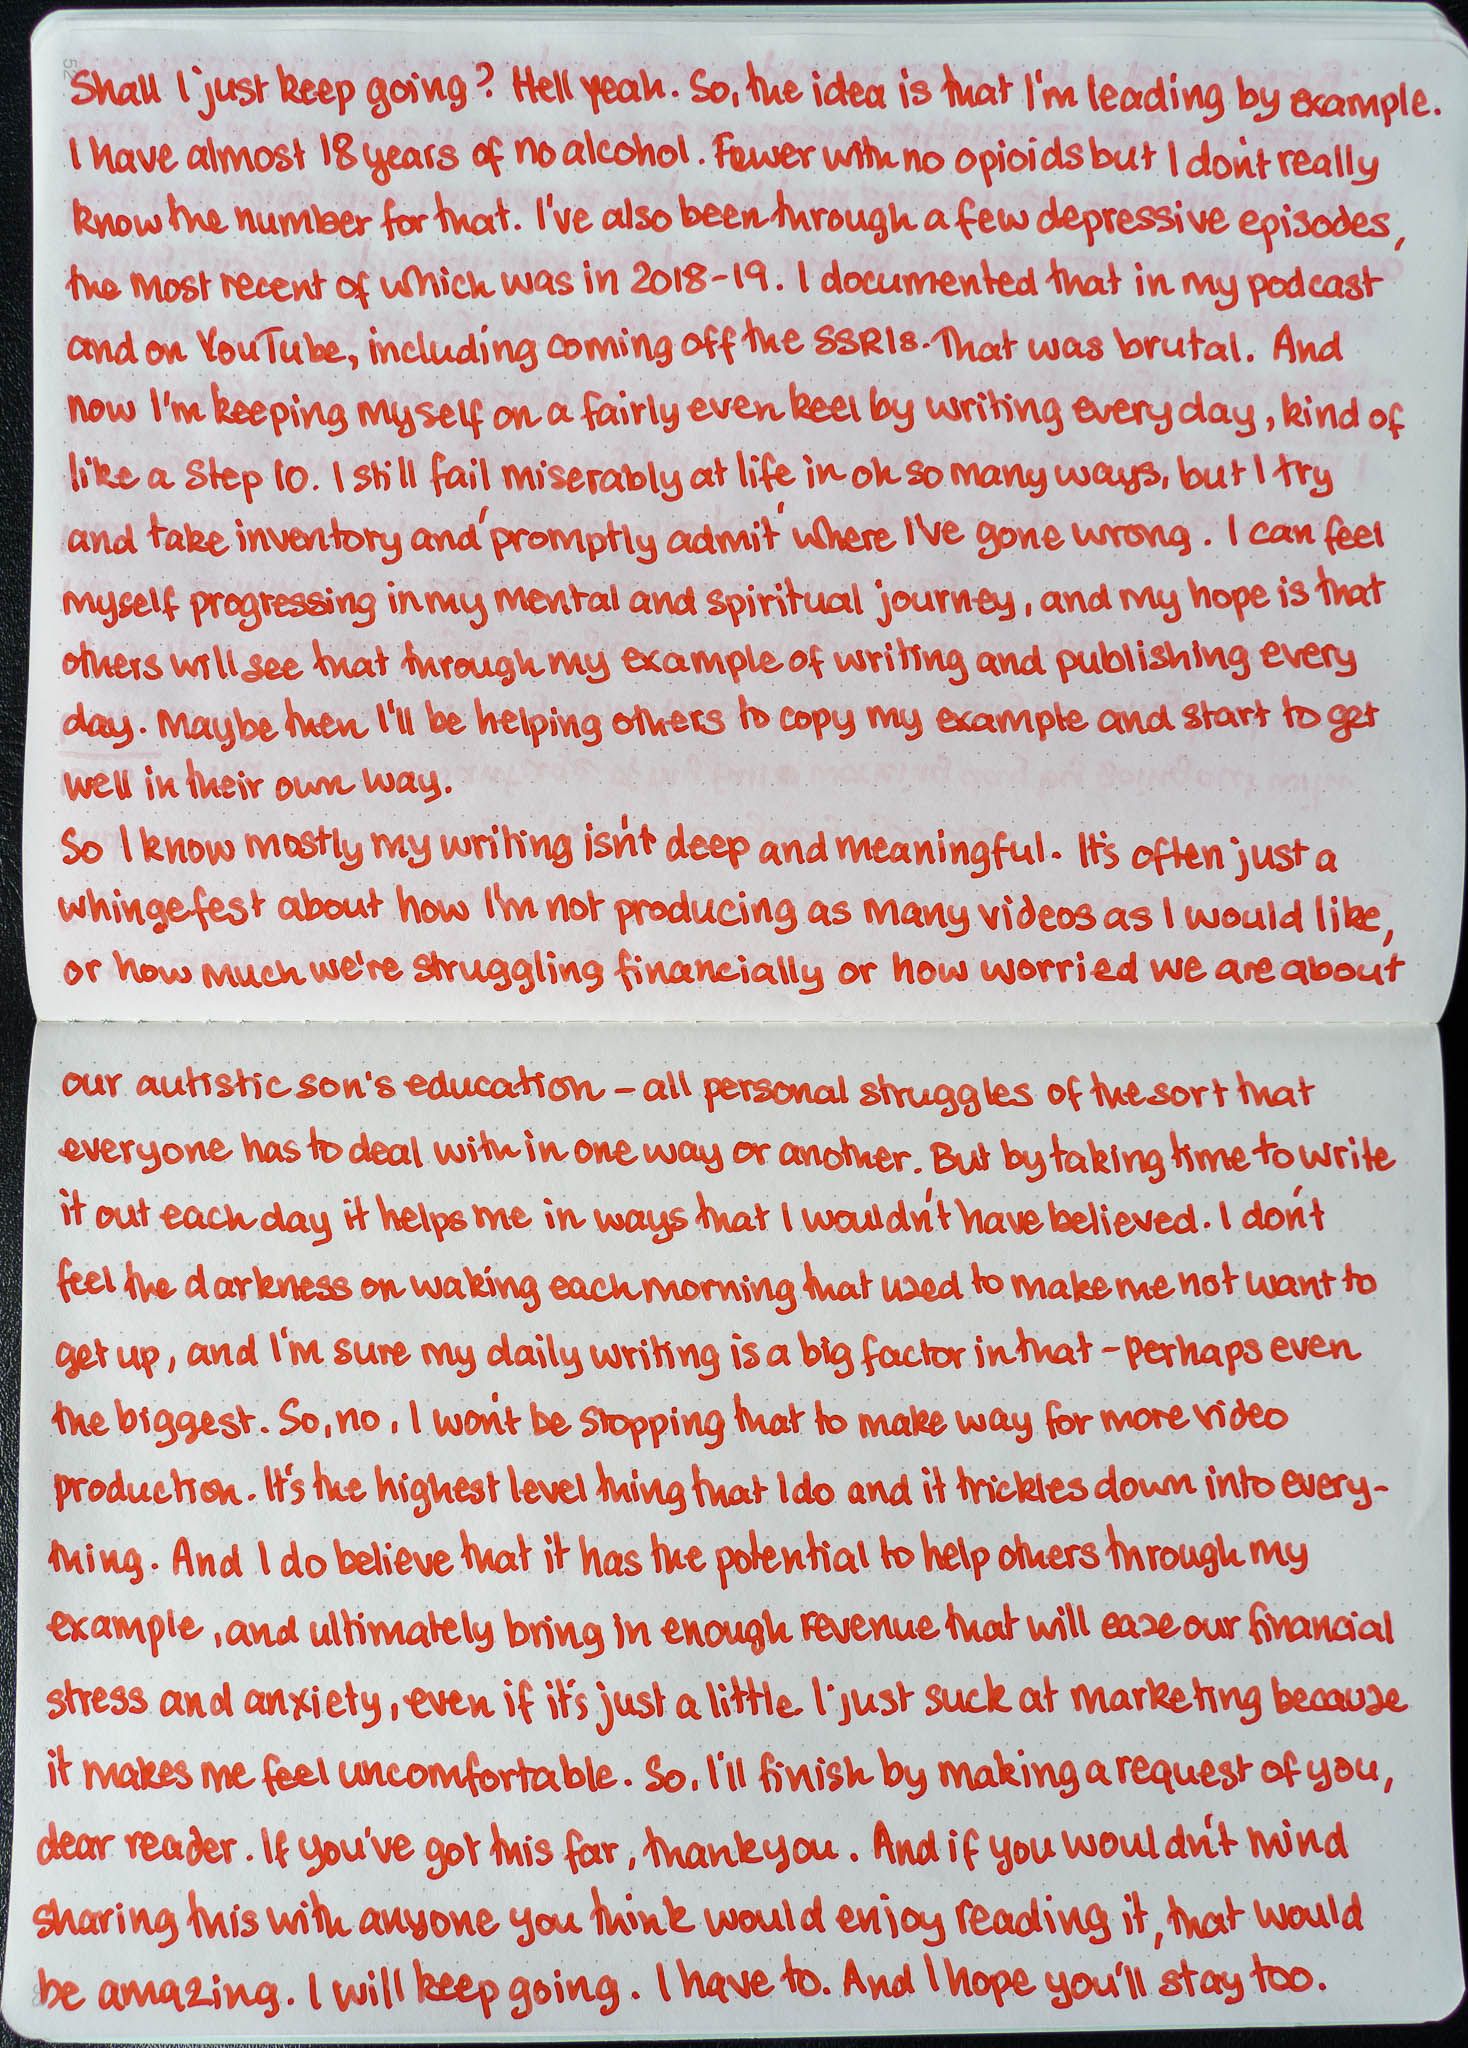 Shall I just keep going? Hell yeah. So, the idea is that I'm leading by example.
I have almost 18 years of no alcohol. Fewer with no opioids but I don't really
know the number for that. I've also been through a few depressive episodes,
the most recent of which was in 2018-19. I documented that in my podcast
and on YouTube, including coming off the SSRIs. That was brutal. And
now I'm keeping myself on a fairly even keel by writing every day, kind of
like a Step 10. I still fail miserably at life in oh so many ways, but I try
and take inventory and 'promptly admit' where I've gone wrong. I can feel
myself progressing in my mental and spiritual journey, and my hope is that
others will see that through my example of writing and publishing every
day. Maybe then I'll be helping others to copy my example and start to get
well in their own way.
So I know mostly my writing isn't deep and meaningful. It's often just a
whingefest about how I'm not producing as many videos as I would like,
or how much we're struggling financially or how worried we are about
our autistic son's education – all personal struggles of the sort that
everyone has to deal with in one way or another. But by taking time to write
it out each day it helps me in ways that I wouldn't have believed. I don't
feel the darkness on waking each morning that used to make me not want to
get up, and I'm sure my daily writing is a big factor in that – perhaps even
the biggest. So, no, I won't be stopping that to make way for more video
production. It's the highest level thing that I do and it trickles down into every-
thing. And I do believe that it has the potential to help others through my
example, and ultimately bring in enough revenue that will ease our financial
stress and anxiety, even if it's just a little. I just suck at marketing because
it makes me feel uncomfortable. So, I'll finish by making a request of you,
dear reader. If you've got this far, thank you. And if you wouldn't mind
sharing this with anyone you think would enjoy reading it, that would
be amazing. I will keep going. I have to. And I hope you'll stay too.